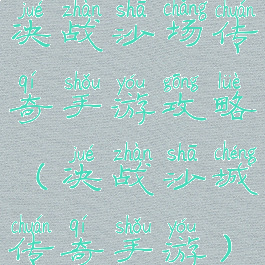 jué zhàn shā chǎng chuán
决战沙场传
qí shǒu yóu gōng lüè
奇手游攻略
jué zhàn shā chéng
（决战沙城
chuán qí shǒu yóu
传奇手游）